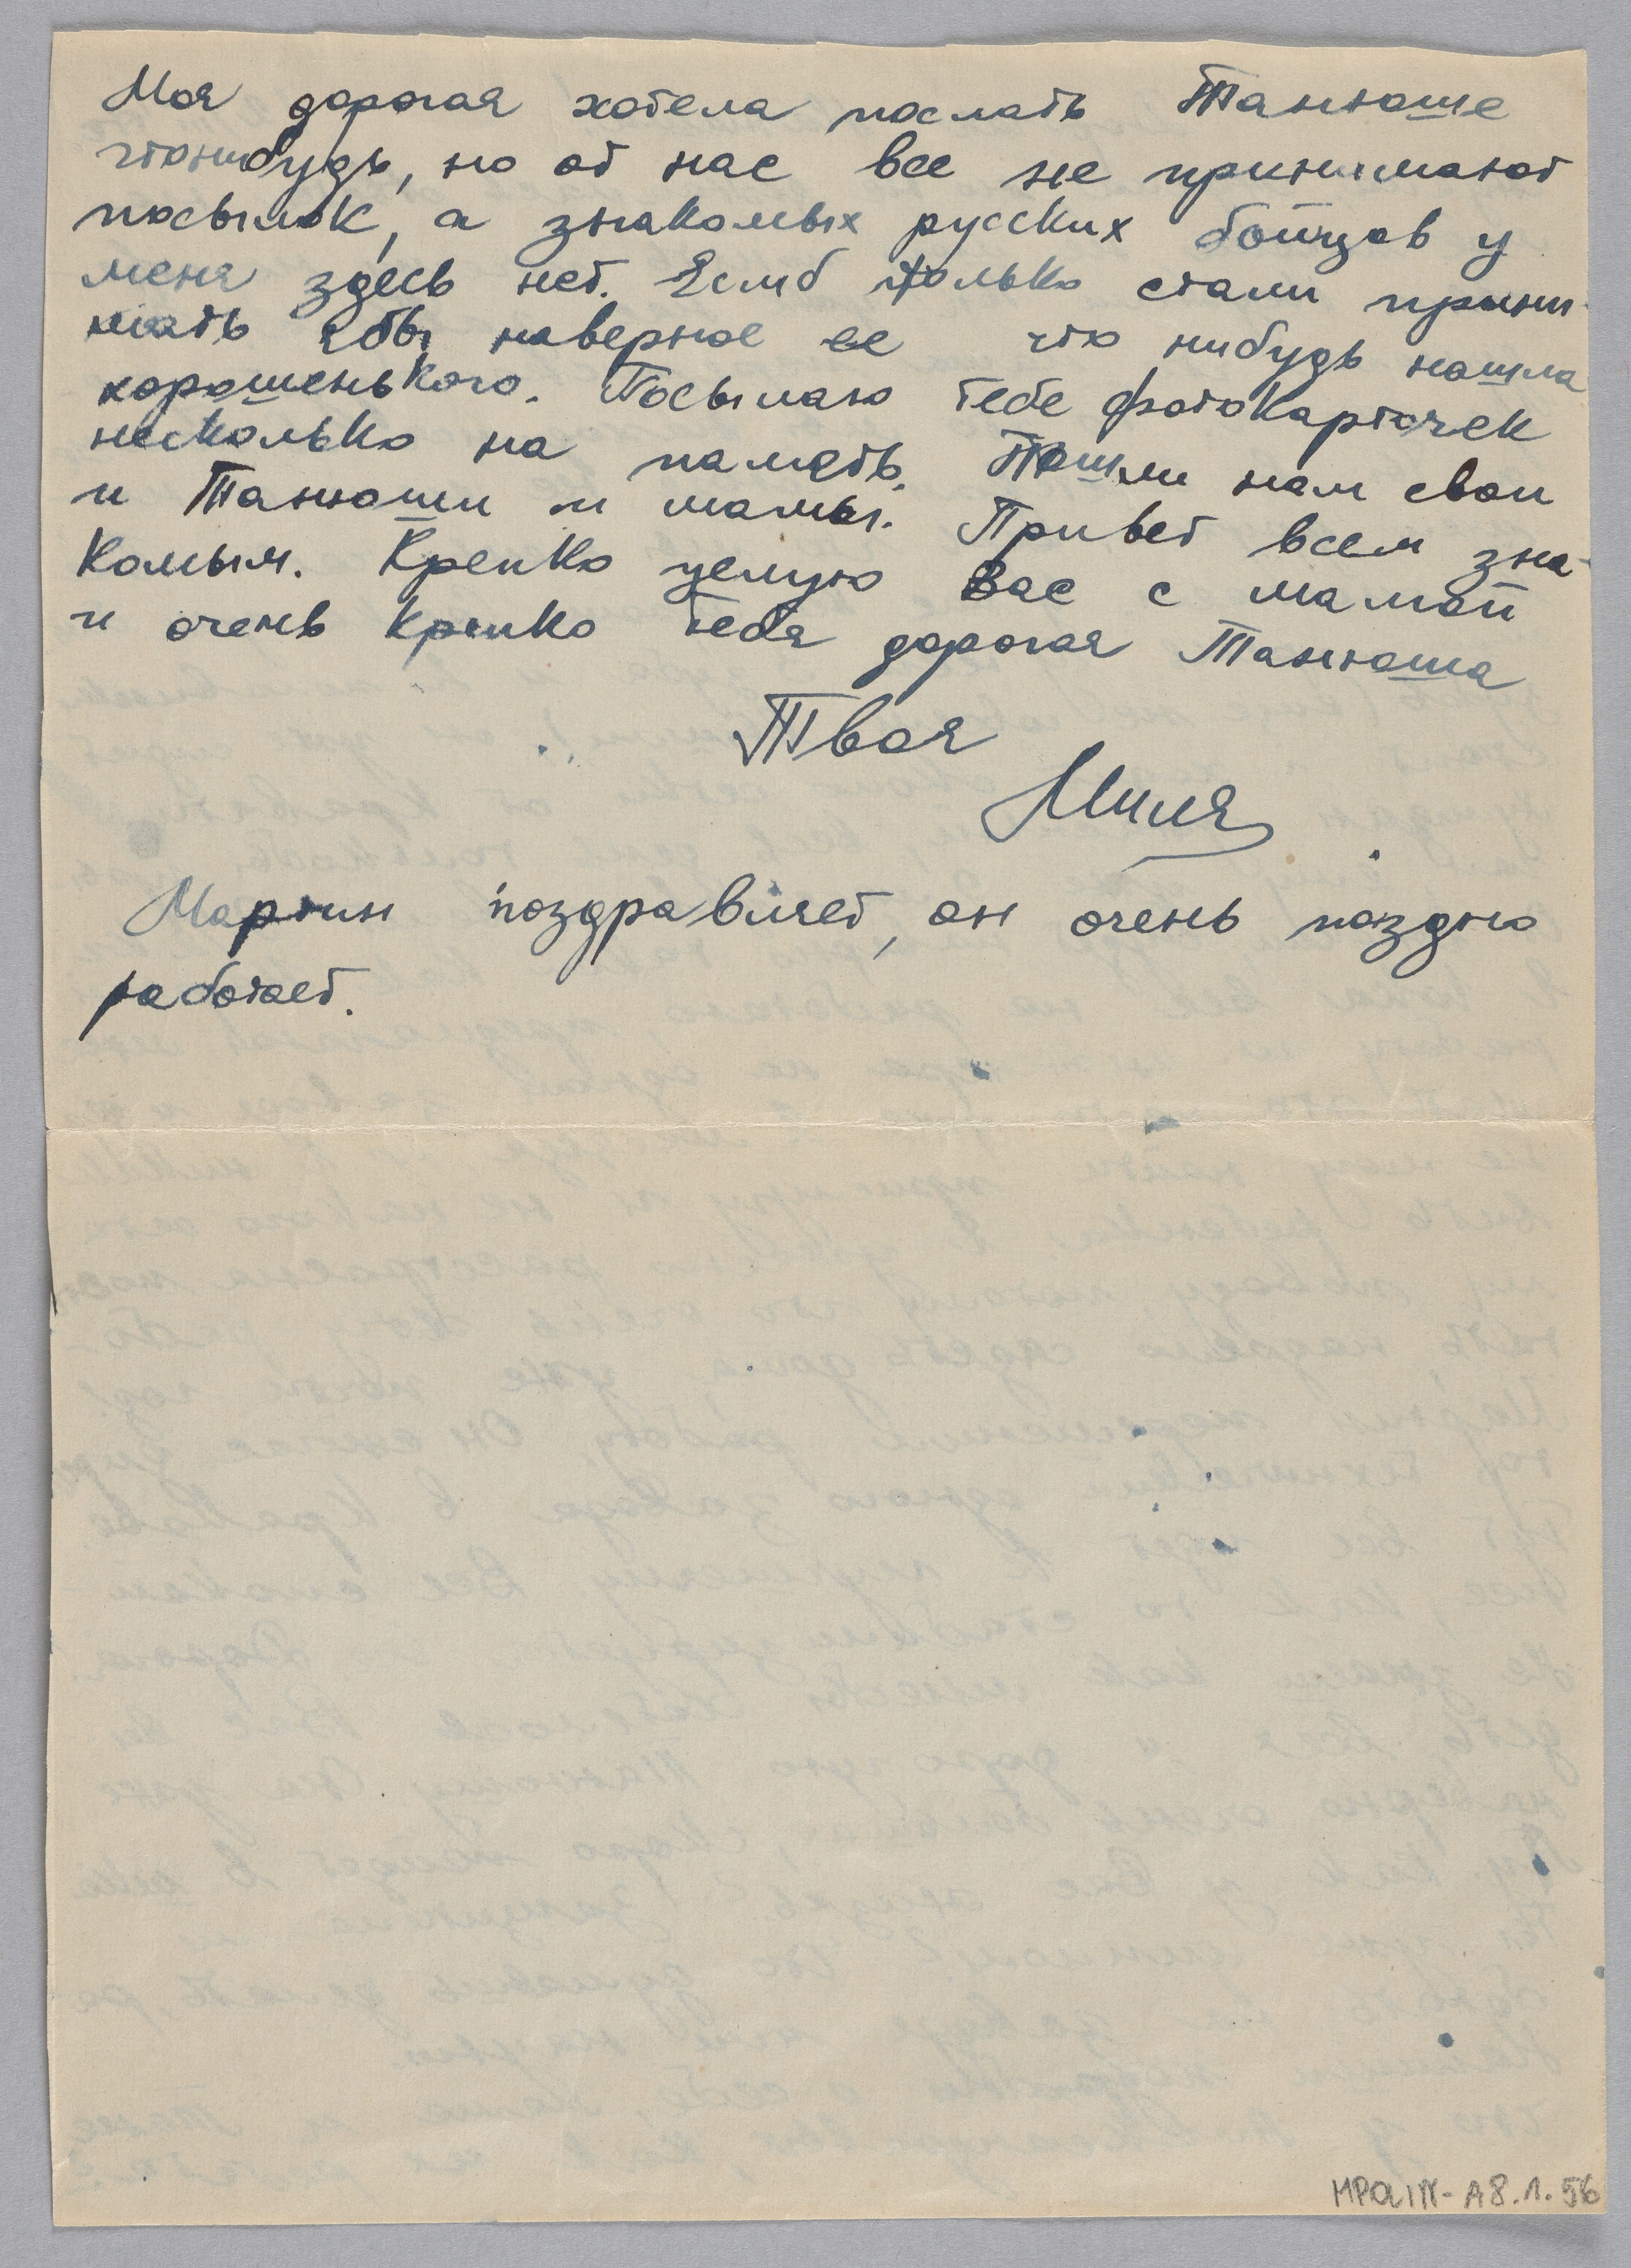 Моя дорогая хотела послать Танюше
чтонибудь, но от нас все не принимают
посылок, а знакомых русских бойцов у
меня здесь нет. Если б только стали прини-
мать я бы наверное ее что нибудь нашла
хорошенького. Посылаю тебе фотокарточек
несколько на память. Пошли нам свои
и Танюши и мамы. Привет всем зна-
комым. Крепко целую Вас с мамой
и очень крепко тебя дорогая Танюша
Твоя
Миля
Мартин поздравляет, он очень поздно
работает.
MPOLIN-A8.1.56